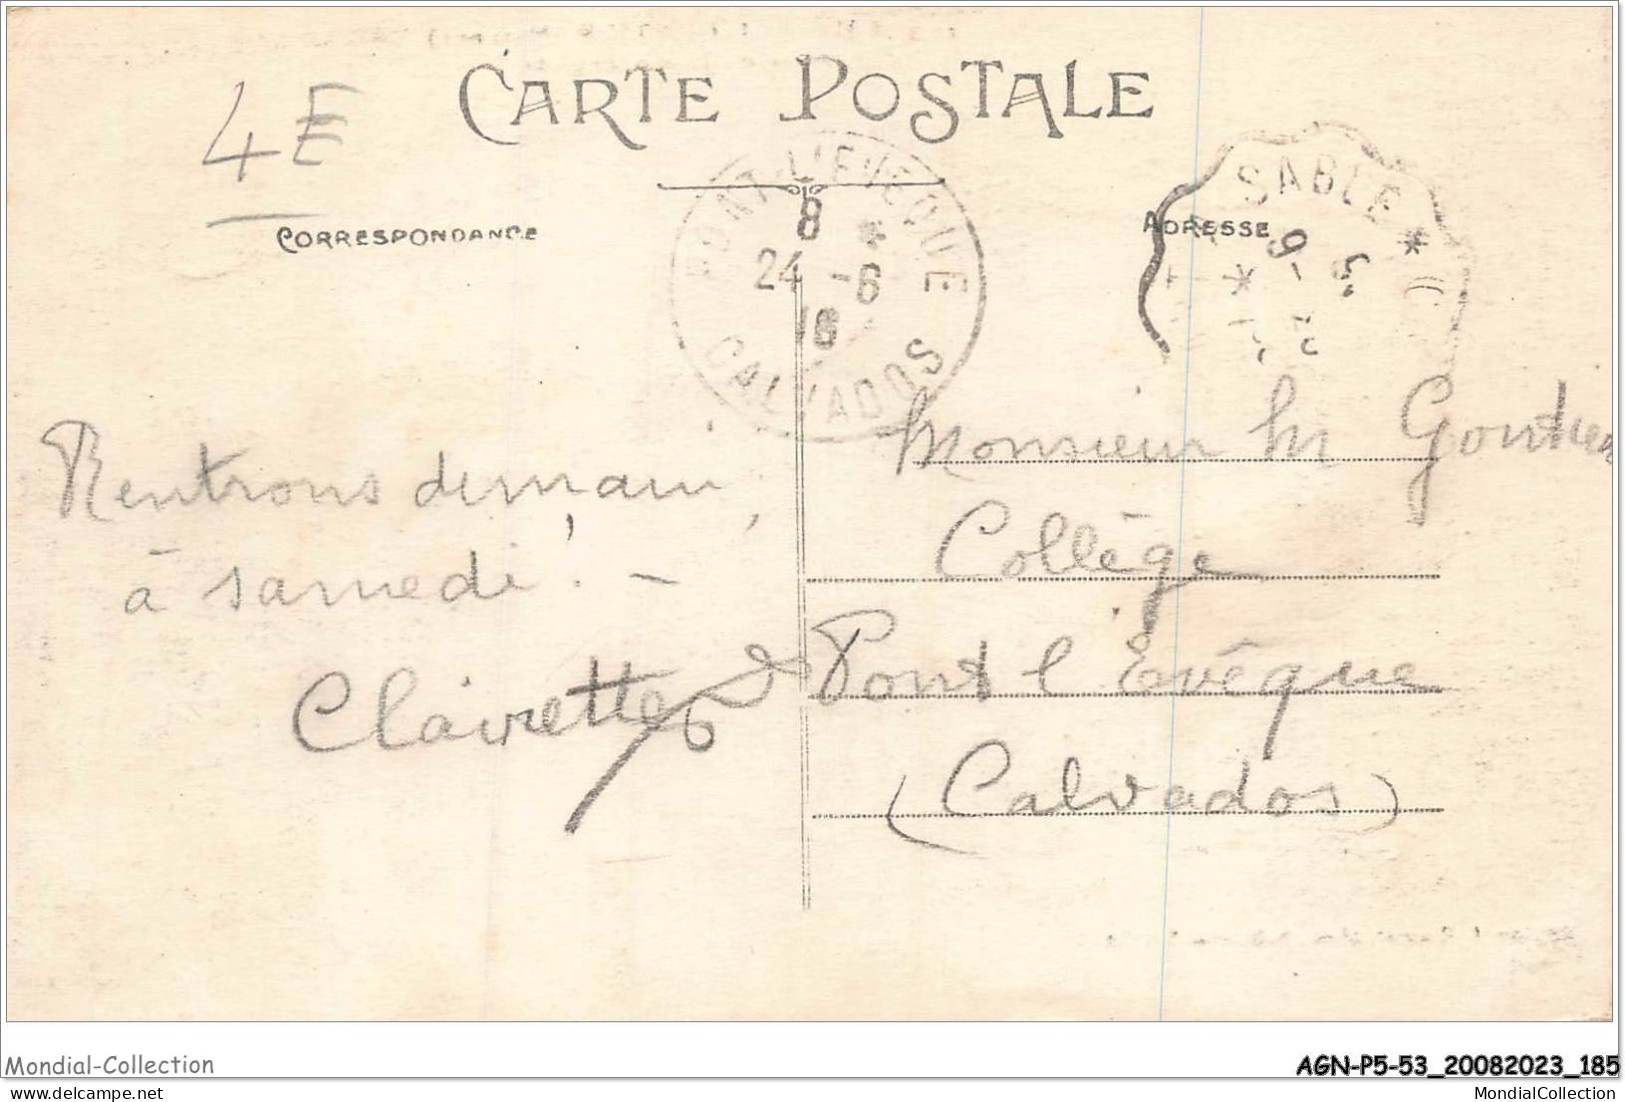 CARTE POSTALE
4E
CORRESPONDANCE
ADRESSE
PONT-L'EVEQUE
8
24 -6
18
CALVADOS
SABLE
Rentrons demain,
à samedi! -
Clairette
Monsieur M Gontier
Collège
Pont l'Evêque
(Calvados)
Mondial-Collection
AGN-P5-53_20082023_185
MondialCollection